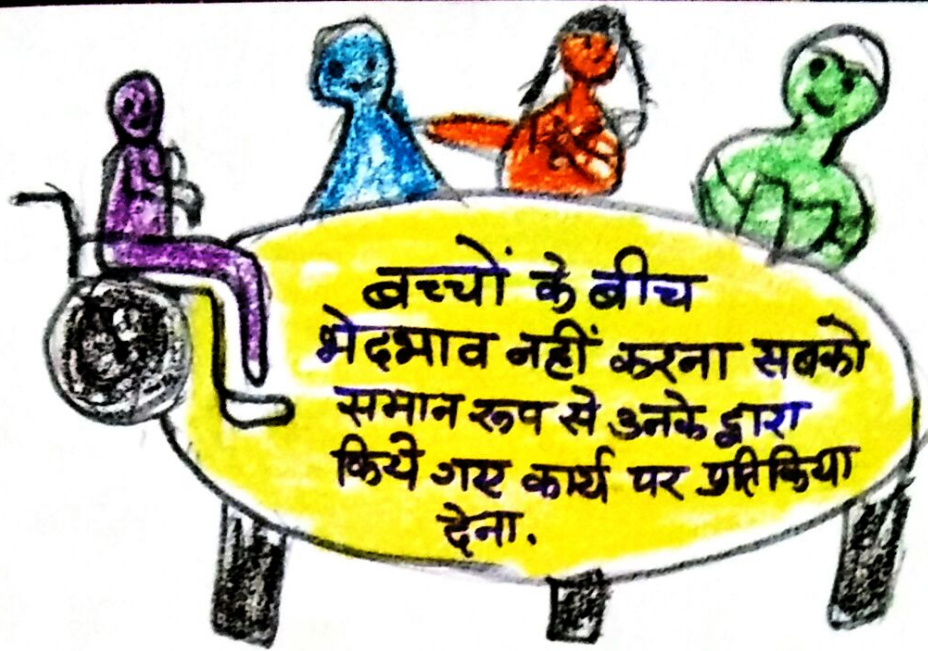 बच्चों के बीच
भेदभाव नहीं करना सबको
समान रूप से उनके द्वारा
किये गए कार्य पर प्रतिकिया
देना.